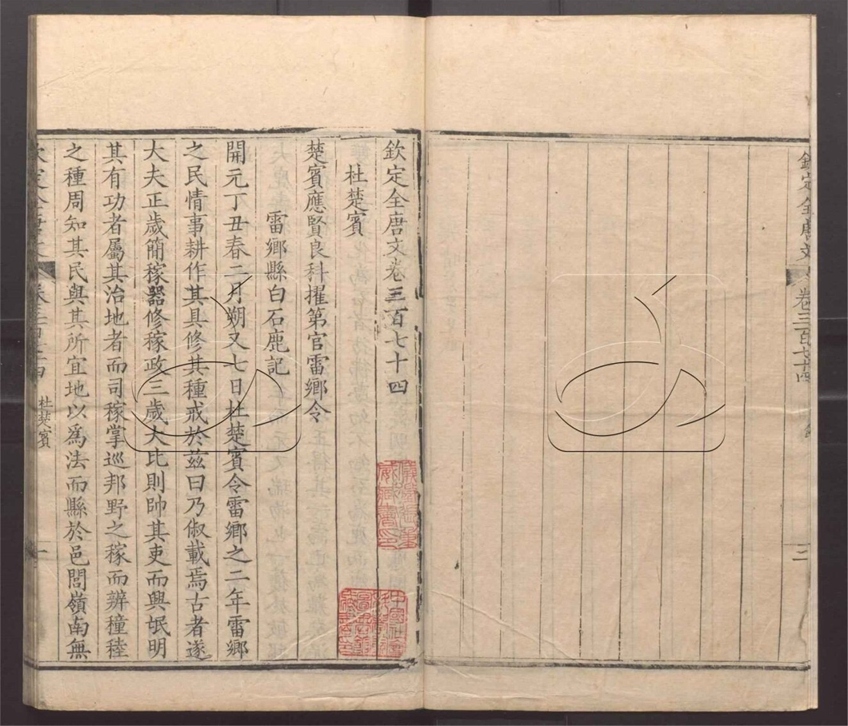 欽定全唐文
卷三百七十四
三
欽定全唐文卷三百七十四
杜楚賓
楚賓應賢良科擢第官雷鄉令
雷鄉縣白石鹿記
開元丁丑春二月朔又七日杜楚賓令雷鄉之二年雷鄉
之民情事耕作其具修其種戒於茲曰乃俶載焉古者遂
大夫正歲簡稼器修稼政三歲大比則帥其吏而興甿明
其有功者屬其治地者而司稼掌巡邦野之稼而辨穜稑
之種周知其民與其所宜地以為法而縣於邑閭嶺南無
欽定全唐文
卷三百七十四
杜楚賓
一